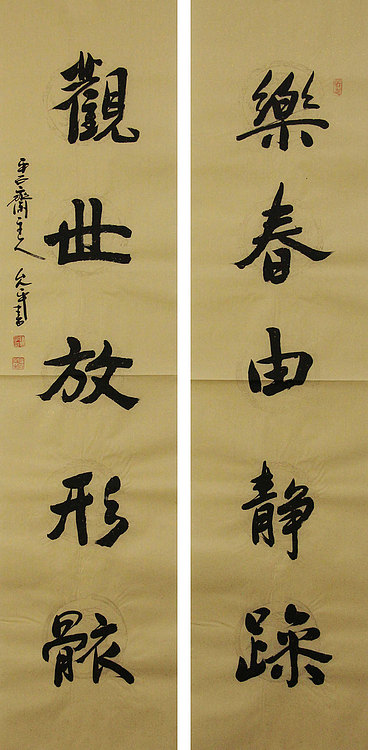 樂春由静躁
觀世放形骸
齋主人 平書